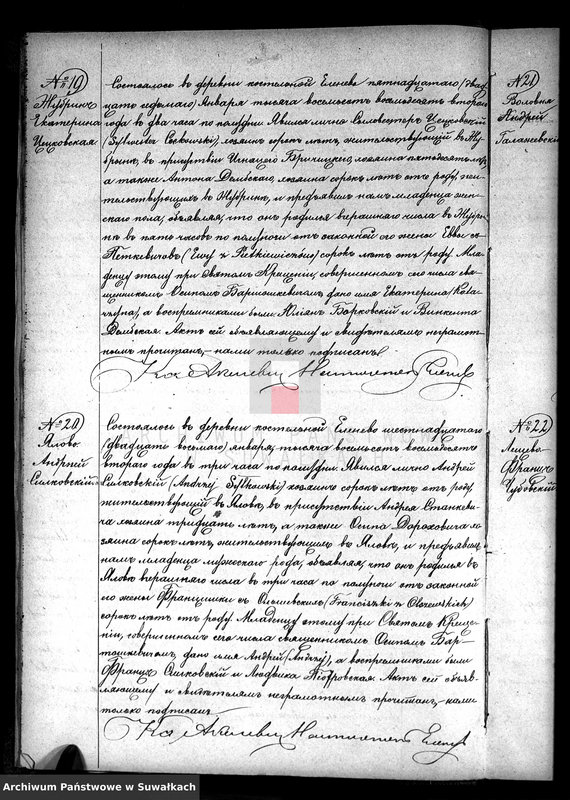 № 19
Жубринъ
Екатерина
Цецковская
Состоялось въ деревни костельной Еленеве пятнадцатаго (двад
цать седьмаго) Января тысяча восемьсотъ восемьдесятъ втораго
года въ два часа по полудни Явился лично Сильвестеръ Цецковскій
(Sylwester Ceckowski), хозяинъ сорокъ лѣтъ, жительствующій въ Жу
бринѣ, въ присутствіи Игнація хозяина пятьдесятъ лѣтъ
а также Антона Дембскаго, хозяина сорокъ лѣтъ отъ роду, жи
тельствующихъ въ Жубринѣ, и предъявилъ намъ младенца жен
скаго пола, объявляя, что онъ родился вчерашняго числа въ Жубри
нѣ въ пять часовъ по полуночи отъ законной его жены Еввы съ
Петкевичовъ (Ewy z Pietkiewiczów) сорокъ лѣтъ отъ роду. Мла
денцу этому при Святомъ Крещеніи, совершенномъ сего числа свя
щенникомъ Осипомъ Бартошкевичомъ дано имя Екатерина (Kata
rzyna), а воспреемниками были Юліанъ Борковскій и Викента
Дембская Актъ сей объявляющему и свидѣтелямъ неграмот
нымъ прочитанъ,—нами только подписанъ
№ 20
Ялово
Андрей
Силковскій
Состоялось въ деревни костельной Еленево шестнадцатаго
(двадцать восьмаго) января, тысяча восемьсотъ восемьдесятъ
втораго года въ три часа по полудни Явился лично Андрей
Силковскій (Andrzej Sylkowski) хозяинъ сорокъ лѣтъ отъ роду,
жительствующій въ Яловѣ, въ присутствіи Андрея Станкеви
ча хозяина тридцать лѣтъ, а также Осипа Дороховича хо
зяина сорокъ лѣтъ, жительствующихъ въ Яловѣ, и предъявилъ
намъ младенца мужескаго рода, объявляя, что онъ родился въ
Яловѣ вчерашняго числа въ три часа по полуночи отъ законной
его жены Францишки съ Ольшевскихъ (Franciszki z Olszewskich)
сорокъ лѣтъ отъ роду. Младенцу этому при Святомъ Креще
ніи, совершенномъ сего числа священникомъ Осипомъ Бар-
тошкевичомъ, дано имя Андрей (Andrzej), а воспреемниками были
Францъ Силковскій и Людвика Піотровская Актъ сей объяв
ляющему и свидѣтелямъ неграмотнымъ прочитанъ,—нами
только подписанъ
№ 21
Воловня
Андрей
№ 22
Лещево
Францъ
Чубовскій
Archiwum Państwowe w Suwałkach